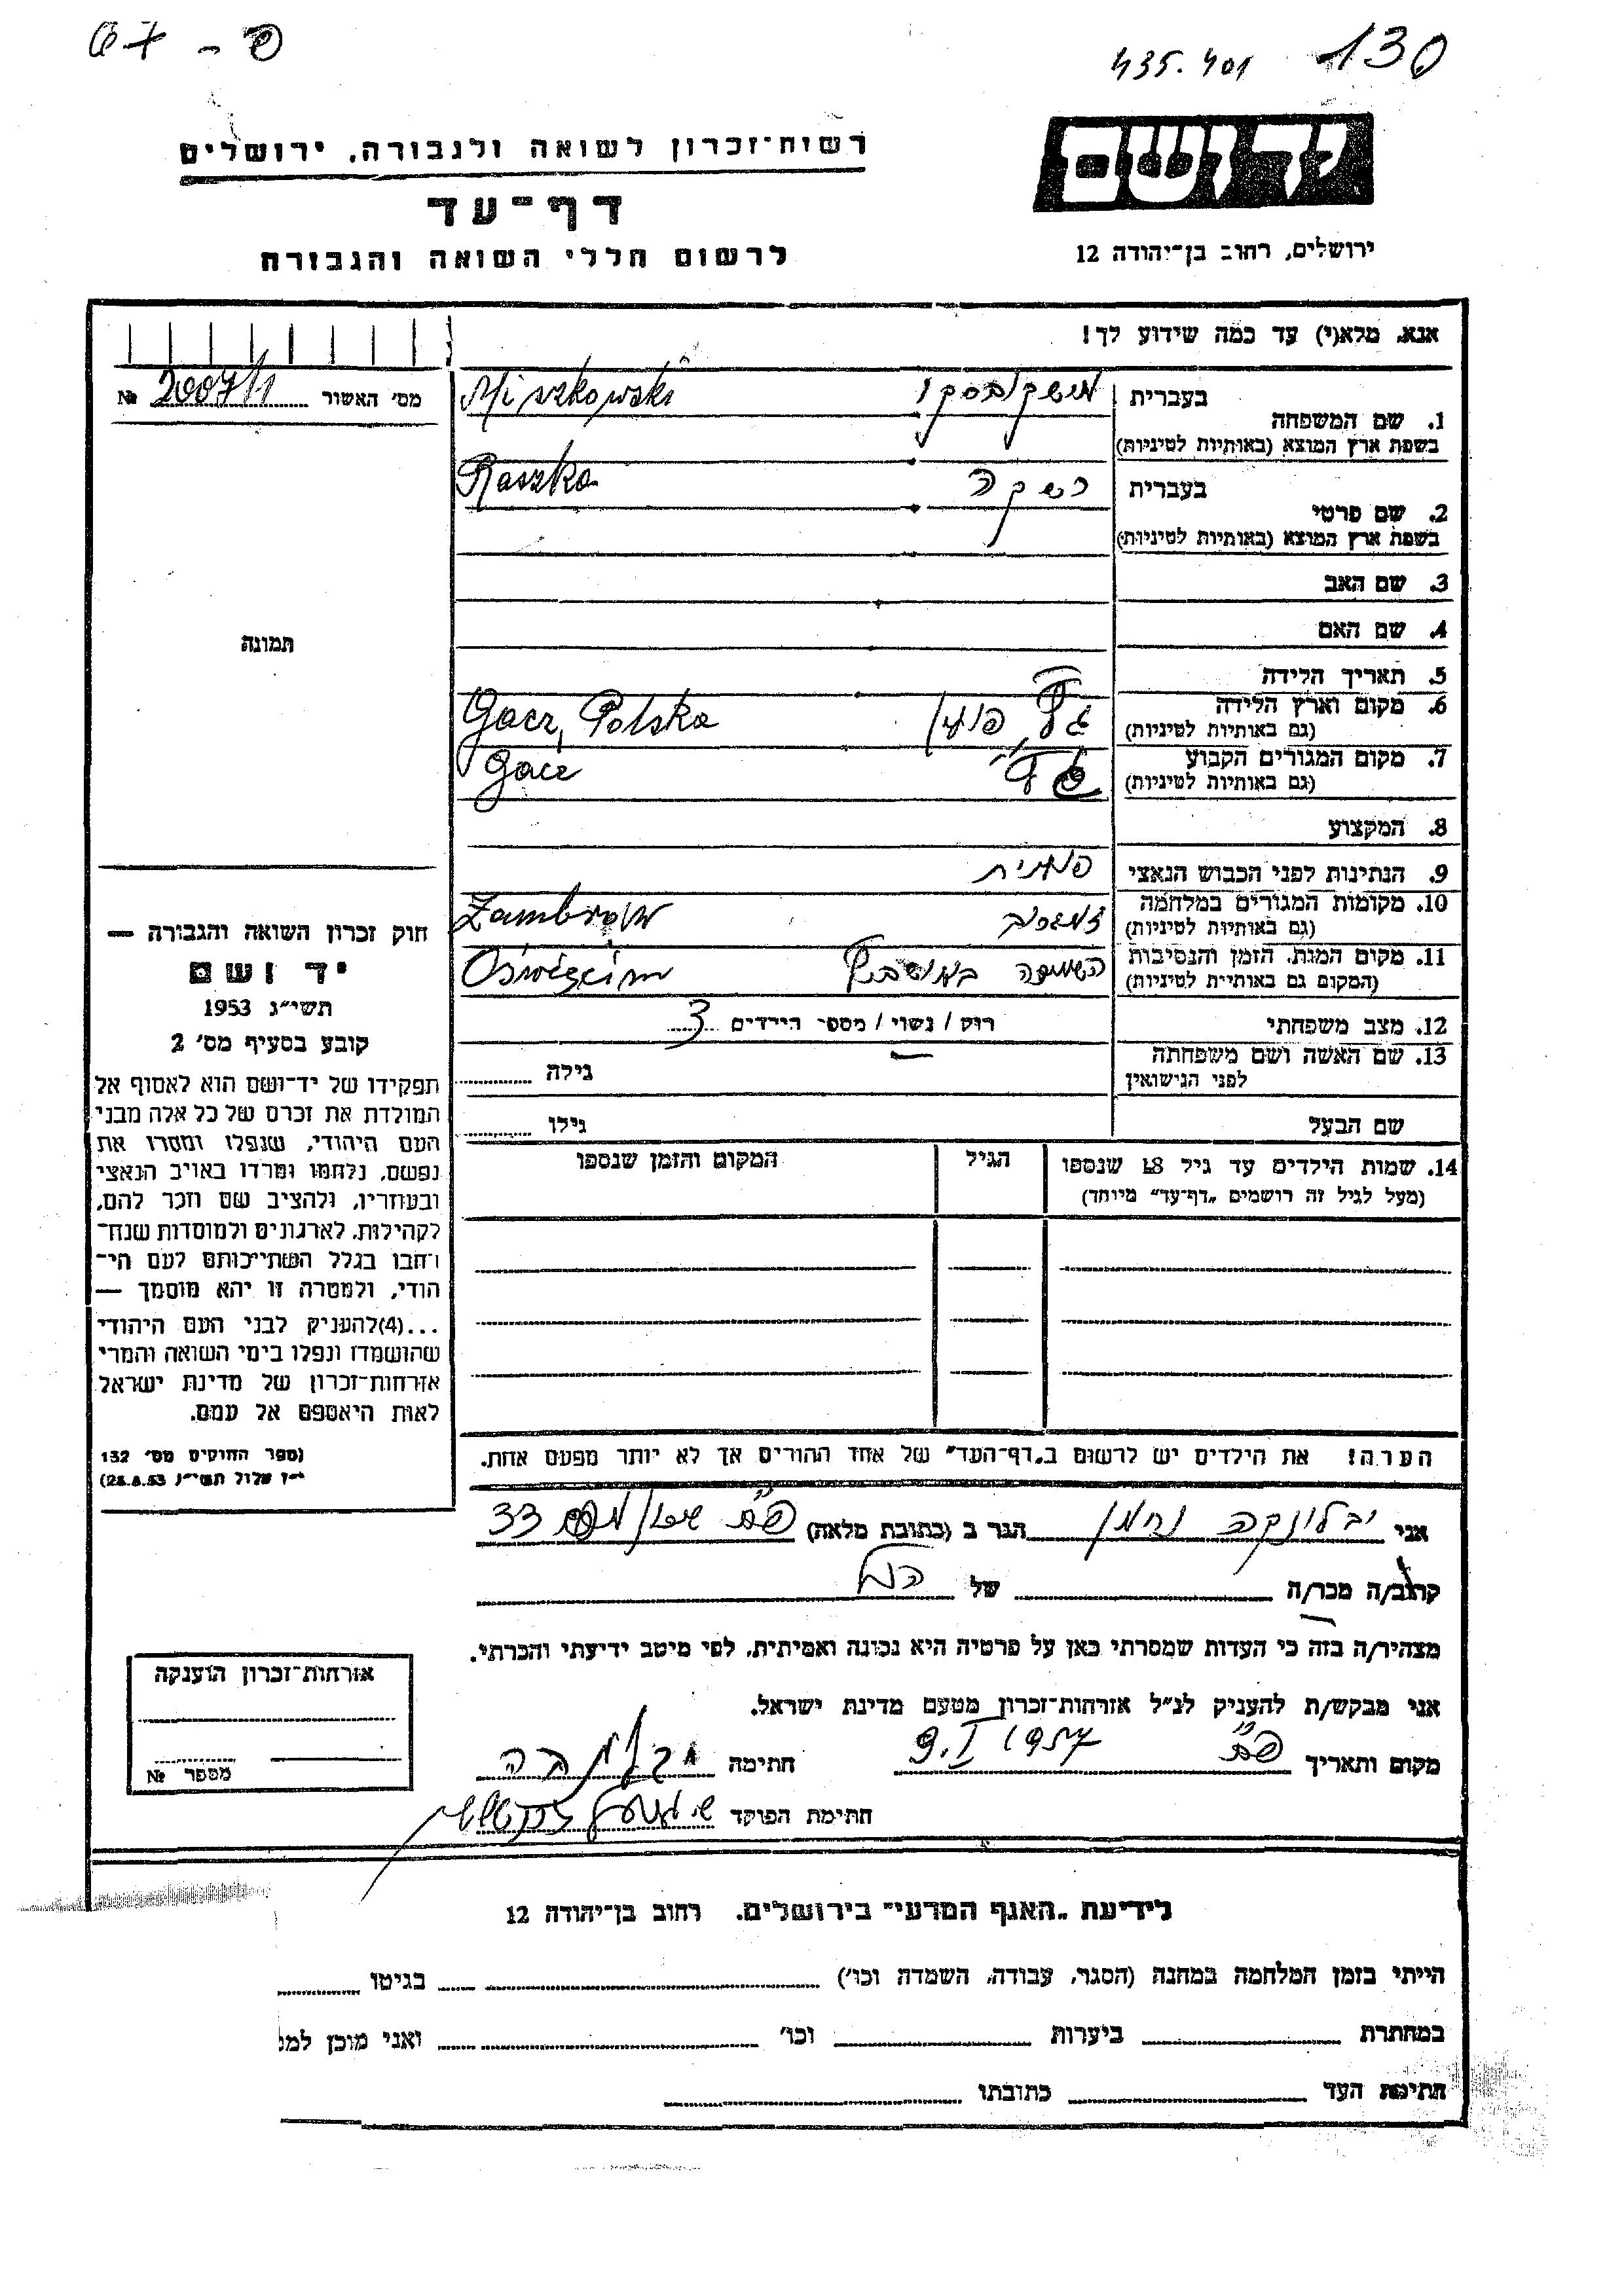 67 - פ
435.401 130
רשות־זכרון לשואה ולגבורה, ירושלים
יד ושם
דף־עד
לרשום חללי השואה והגבורה
ירושלים, רחוב בן־יהודה 12
אנא, מלא(י) עד כמה שידוע לך!
מס' האשור 2007/11 №
1. שם המשפחה בעברית מישקובסקי Miszkowski
בשפת ארץ המוצא (באותיות לטיניות)
2. שם פרטי בעברית רשקה Raszka
בשפת ארץ המוצא (באותיות לטיניות)
3. שם האב
4. שם האם
תמונה
5. תאריך הלידה
6. מקום וארץ הלידה פולין Gacz, Polska
(גם באותיות לטיניות)
7. מקום המגורים הקבוע Gacz
(גם באותיות לטיניות)
8. המקצוע
9. הנתינות לפני הכבוש הנאצי פולנית
10. מקומות המגורים במלחמה זמברוב Zambrów
(גם באותיות לטיניות)
11. מקום המות, הזמן והנסיבות הושמדה באושביץ Oświęcim
(המקום גם באותיות לטיניות)
12. מצב משפחתי רוק / נשוי / מספר הילדים 3
13. שם האשה ושם משפחתה גילה
לפני הנישואין
שם הבעל גילו
14. שמות הילדים עד גיל 18 שנספו הגיל המקום והזמן שנספו
(מעל לגיל זה רושמים „דף־עד" מיוחד)
חוק זכרון השואה והגבורה —
יד ושם
תשי"ג 1953
קובע בסעיף מס' 2
תפקידו של יד־ושם הוא לאסוף אל
המולדת את זכרם של כל אלה מבני
העם היהודי, שנפלו ומסרו את
נפשם, נלחמו ומרדו באויב הנאצי
ובעוזריו, ולהציב שם וזכר להם,
לקהילות, לארגונים ולמוסדות שנח־
רבו בגלל השתייכותם לעם הי־
הודי, ולמטרה זו יהא מוסמך —
...(4)להעניק לבני העם היהודי
שהושמדו ונפלו בימי השואה והמרי
אזרחות־זכרון של מדינת ישראל
לאות היאספם אל עמם.
(ספר החוקים מס' 132
י"ז אלול תשי"ג 28.8.53)
הערה! את הילדים יש לרשום ב„דף־העד" של אחד ההורים אך לא יותר מפעם אחת.
אני יבלונקה נחמן הגר ב (כתובת מלאה) 33
קרוב/ה מכר/ה של הנ"ל
מצהיר/ה בזה כי העדות שמסרתי כאן על פרטיה היא נכונה ואמיתית, לפי מיטב ידיעתי והכרתי.
אני מבקש/ת להעניק לנ"ל אזרחות־זכרון מטעם מדינת ישראל.
מקום ותאריך 9.I 1957 חתימה יבלונקה
חתימת הפוקד
אזרחות־זכרון הוענקה
מספר №
לידיעת „האגף המדעי" בירושלים, רחוב בן־יהודה 12
הייתי בזמן המלחמה במחנה (הסגר, עבודה, השמדה וכו') בגיטו
במחתרת ביערות וכו' ואני מוכן למס
חתימת העד כתובתו